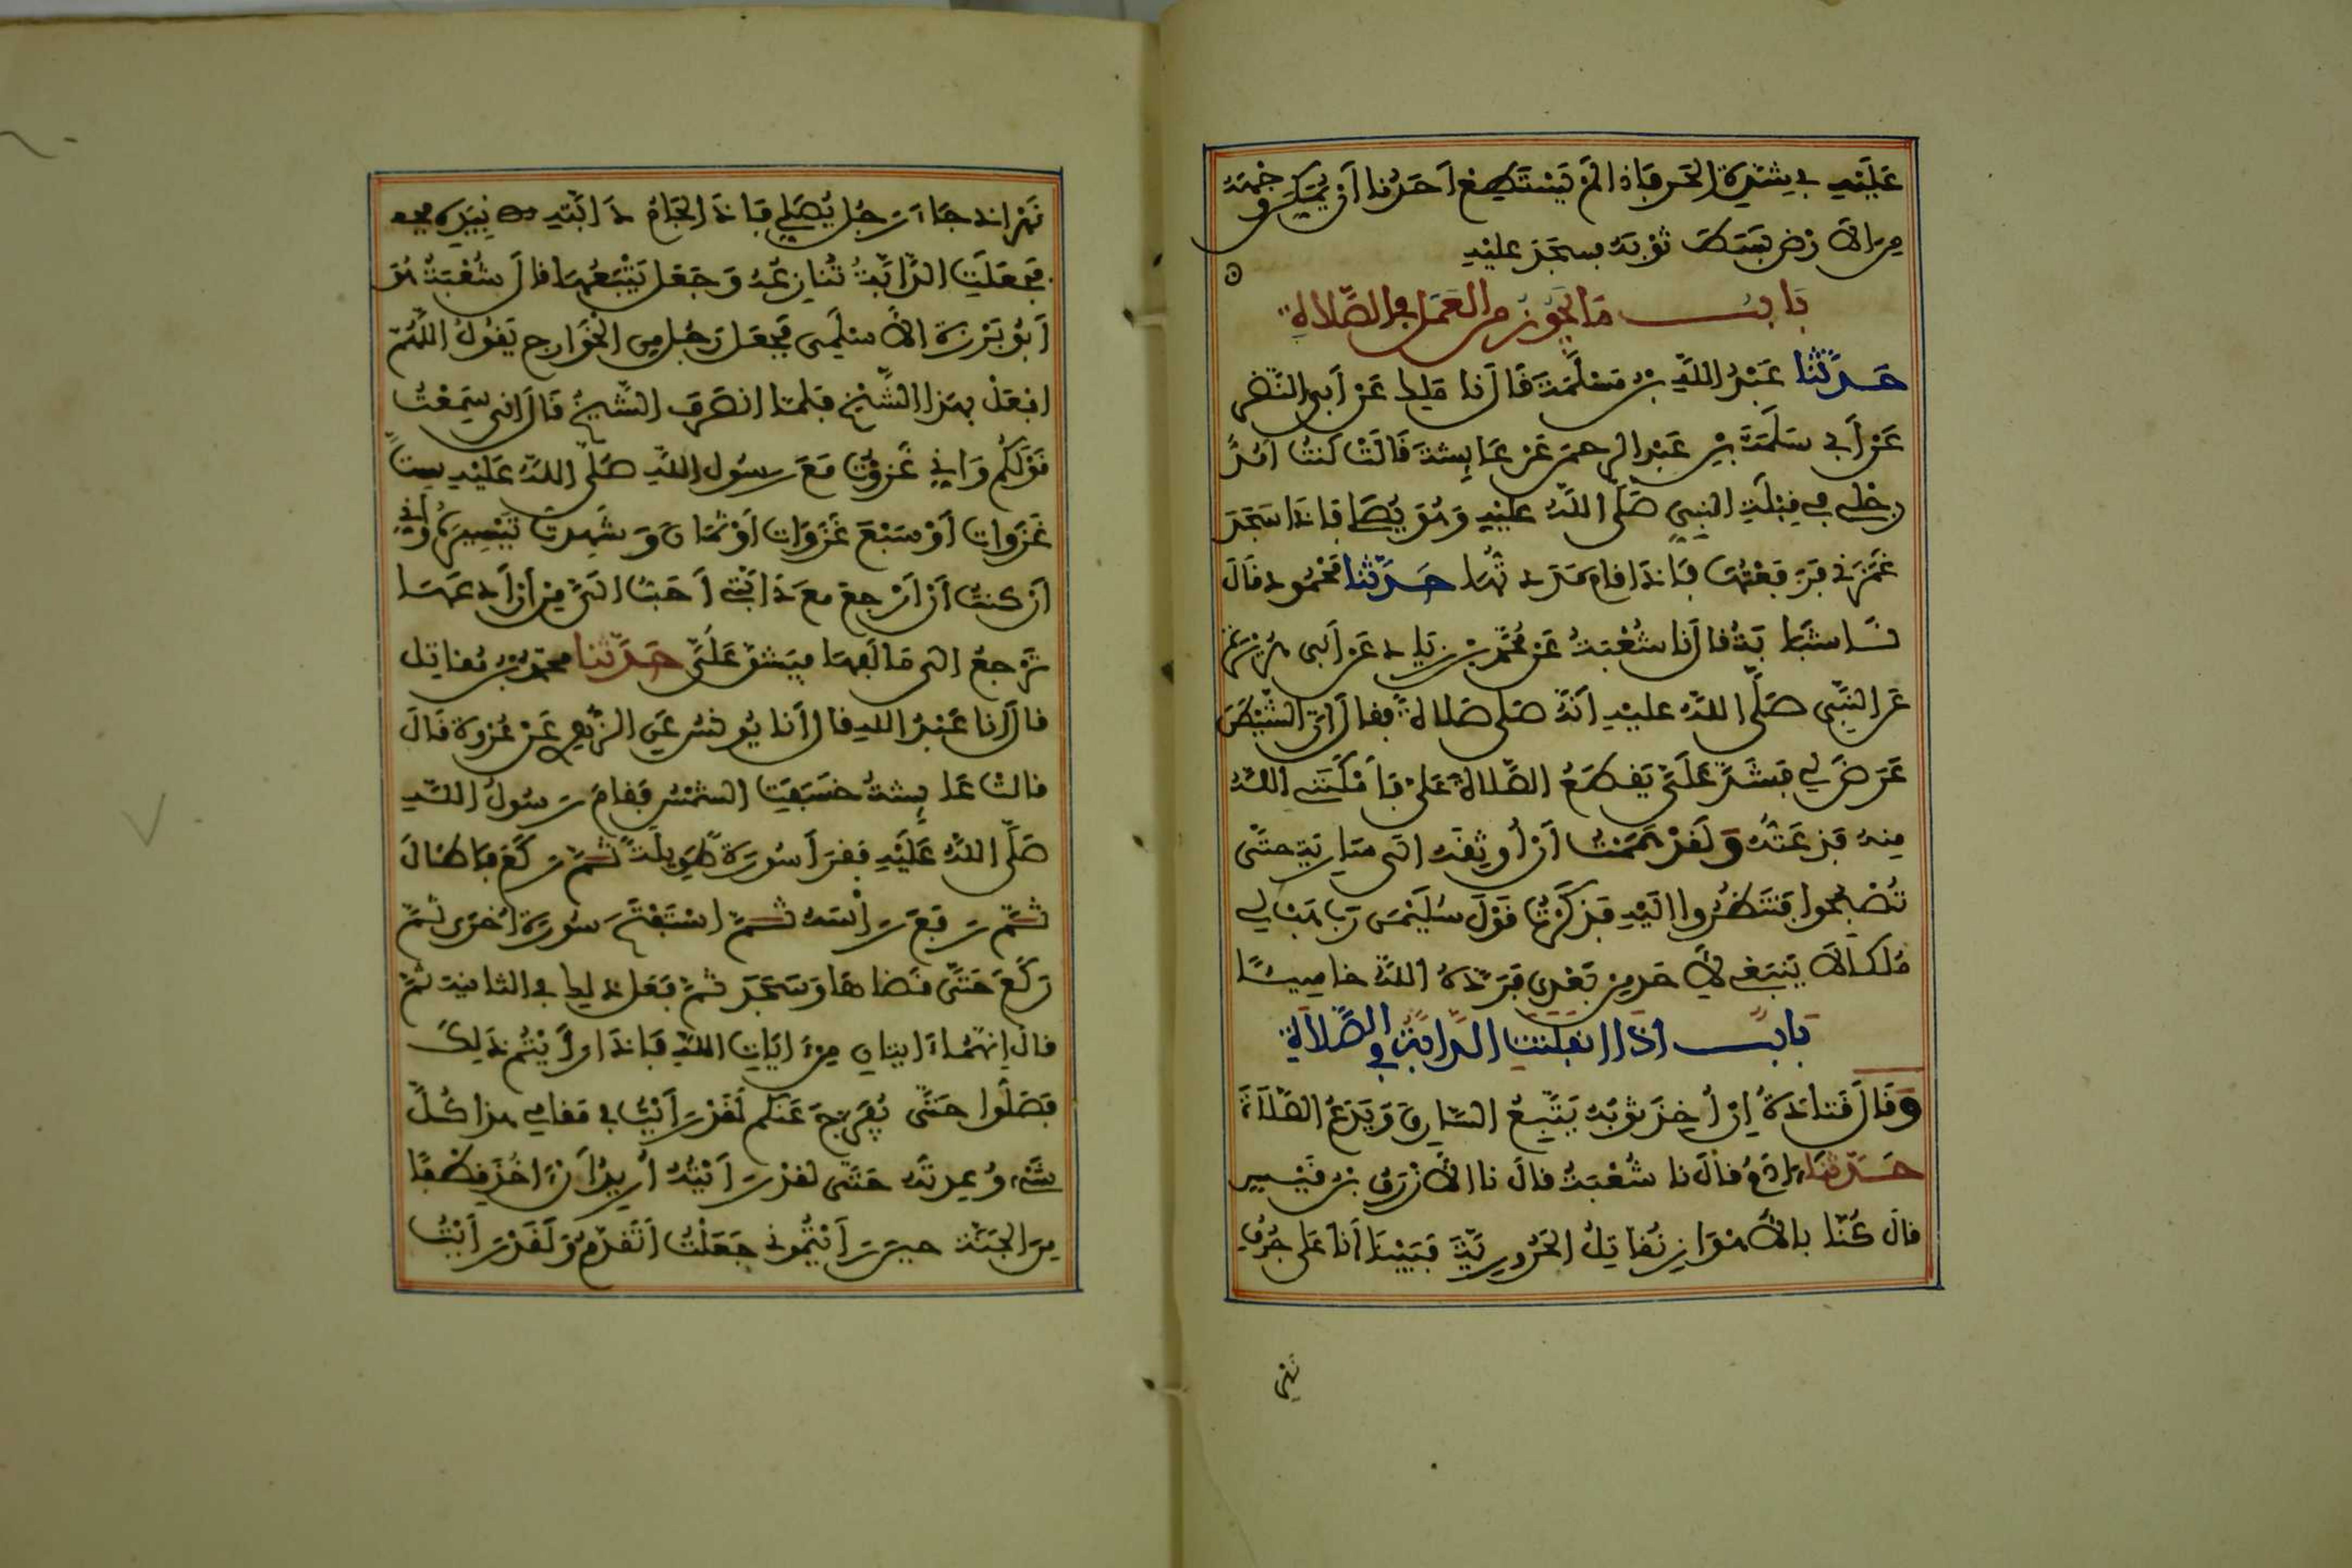 عَلَيْهِ في شِدَّةِ الحَرِّ فَإذَا لَمْ يَسْتَطِعْ أَحَدُنا أَنْ يُمَكِّنَ وَجْهَهُ
مِنَ الاَرْضِ بَسَطَ ثَوْبَهُ فسَجَدَ عليْهِ
بَابُ مَا يَجُوزُ مِنَ العَمَلِ في الصَّلاةِ
حَدَّثَنا عَبْدُ اللَّهِ بْنُ مَسْلَمَةَ قَالَ نا مَلِك عَنْ أَبي النَّضْرِ
عَنْ أَبي سَلَمَةَ بْنِ عَبْدِ الرحمنِ عَنْ عَايِشةَ قَالَتْ كُنتُ أَمُدُّ
رِجْلِي في قِبْلَةِ النبيِّ صَلَّى اللَّهُ عليْهِ وَهُوَ يُصَلي فإذا سَجَدَ
غَمَزَني فَرَفَعْتُهَا فَإذَا قامَ مَدَدتُّهَا حَدَّثنا مَحْمُود قَالَ
نَا شَبَابَةُ قالَ نا شُعْبَةُ عَنْ مُحَمَّدِ بْنِ زِيَادٍ عَنْ أَبي هُرَيْرَةَ
عَنِ النَّبيِّ صَلَّى اللَّهُ عليْهِ أَنَّهُ صَلى صَلاةً فقالَ إنَّ الشَّيْطَنَ
عَرَضَ لِي فَشَدَّ عَلَيَّ يَقْطَعُ الصَّلاةَ عَلَيَّ فَأَمْكَنَنِي اللَّهُ
مِنهُ فَذَعَتُّهُ وَلَقَدْ هَمَمْتُ أَنْ أُوثِقَهُ إلى سَارِيَةٍ حتَّى
تُصْبِحُوا فَتَنْظُرُوا إليْهِ فَذَكَرْتُ قَوْلَ سُلَيْمَنَ رَبِّ هَبْ لِي
مُلْكًا لاَ يَنبَغِي لِأَحَدٍ مِنْ بَعْدِي فَرَدَّهُ اللَّهُ خاسِئًا
بَابُ إذَا انفَلَتَتِ الدَّابَّةُ في الصَّلاةِ
وَقَالَ قَتَادَةُ إنْ أُخِذَ ثوْبُهُ يَتَّبِعُ السَّارِقَ وَيَدَعُ الصَّلاَةَ
حَدَّثَنا آدَمُ قالَ نا شُعْبَةُ قالَ نا الأَزْرَقُ بْنُ قَيْسٍ
قالَ كُنَّا بالأَهْوَازِ نُقاتِلُ الحَرُورِيَّةَ فَبَيْنَا أَنا عَلَى جُرُفِ
نَهْر
نَهْرٍ إذ جَاءَ رَجُل يُصَلي فَإذَا لجَامُ دَابَّتِهِ بِيَدِهِ
فَجَعَلَتِ الدَّابَّةُ تُنَازِعُهُ وَجَعَلَ يَتْبَعُهَا قالَ شُعْبَةُ هُوَ
أَبُو بَرْزَةَ الأَسْلَمِي فَجَعَلَ رَجُل مِنَ الخَوَارِج يَقُولُ اللَّهُمَّ
افعَلْ بهذا الشَّيْخِ فلمَّا انصَرَفَ الشَّيْخُ قَالَ إني سَمِعْتُ
قَوْلَكُمْ وَإنِي غَزَوْتُ مَعَ رسُولِ اللَّهِ صَلَّى اللَّهُ عَلَيْهِ سِتَّ
غَزَوات أَوْ سَبْعَ غَزَوَات أَوْ ثَمَانَ وَشَهِدتُ تَيْسِيرَهُ وَإنِي
أَنْ كنتُ أَنْ أَرْجِعَ معَ دَابَّتِي أَحَبُّ إلَيَّ مِنْ أَنْ أَدَعَهَا
تَرْجِعُ إلى مَأْلَفِهَا فيَشُقَّ عَلَيَّ حَدَّثَنا محمدُ بنُ مُقاتِل
قالَ أنا عَبْدُ اللهِ قالَ أنا يُونُسُ عَنِ الزُّهْرِي عَنْ عُرْوَةَ قَالَ
قالتْ عَايِشةُ خَسَفَتِ الشَّمْسُ فقامَ رَسُولُ اللَّهِ
صَلَّى اللَّهُ عَلَيْهِ فقرَأَ سُورَةً طَوِيلَةً ثُمَّ رَكَعَ فأطَالَ
ثُمَّ رَفَعَ رَأْسَهُ ثُمَّ اسْتَفْتَحَ سُورَةً أُخْرَى ثُمَّ
رَكَعَ حَتَّى قَضَاهَا وَسَجَدَ ثُمَّ فَعَلَ ذلِك في الثانيَةِ ثُمَّ
قالَ إنَّهُمَا ءَايتانِ مِنْ ءَايَاتِ اللَّهِ فَإذَا رَأَيْتُمْ ذَلِكَ
فَصَلُّوا حَتَّى يُفْرَجَ عَنكم لَقَدْ رَأَيْتُ في مَقامِي هذا كُلَّ
شَيْءٍ وُعِدتُهُ حَتَّى لقدْ رَأَيْتُهُ أُرِيدُ أَنْ ءَاخُذَ قِطْفًا
مِنَ الجَنَّة حِينَ رَأَيْتُمُونِي جَعَلْتُ أَتَقَدَّمُ وَلَقَدْ رَأَيْتُ